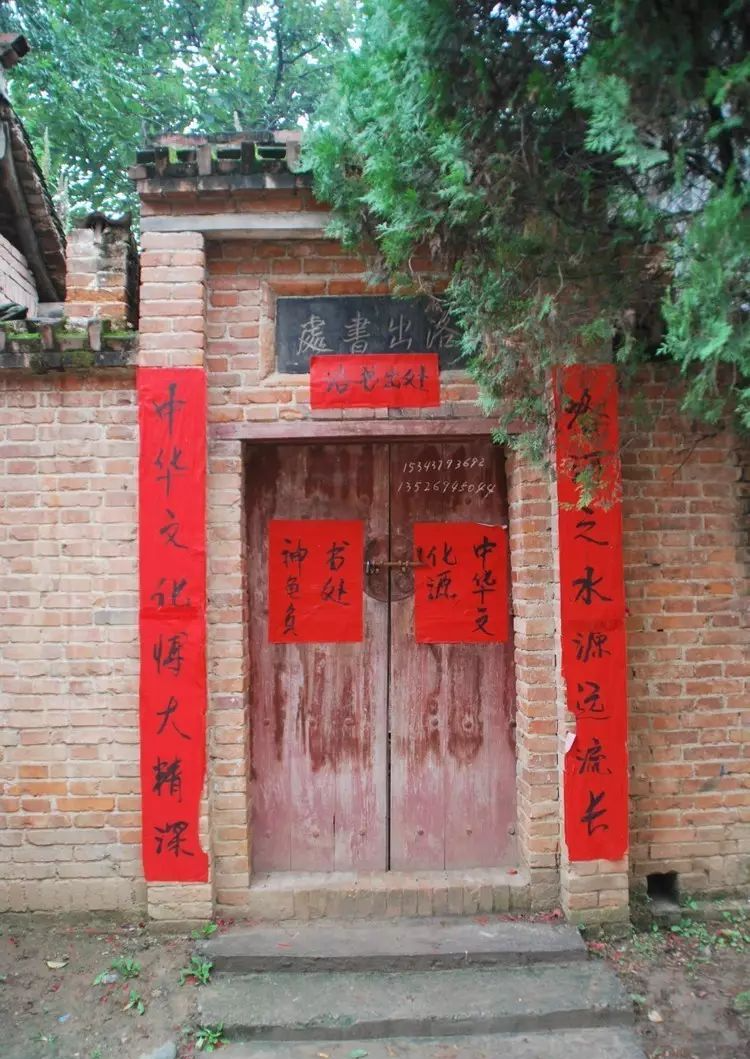 洛出書處
洛书出处
黄河之水源远流长
中华文化博大精深
13526945044
中华文
化源
神龟负
书处